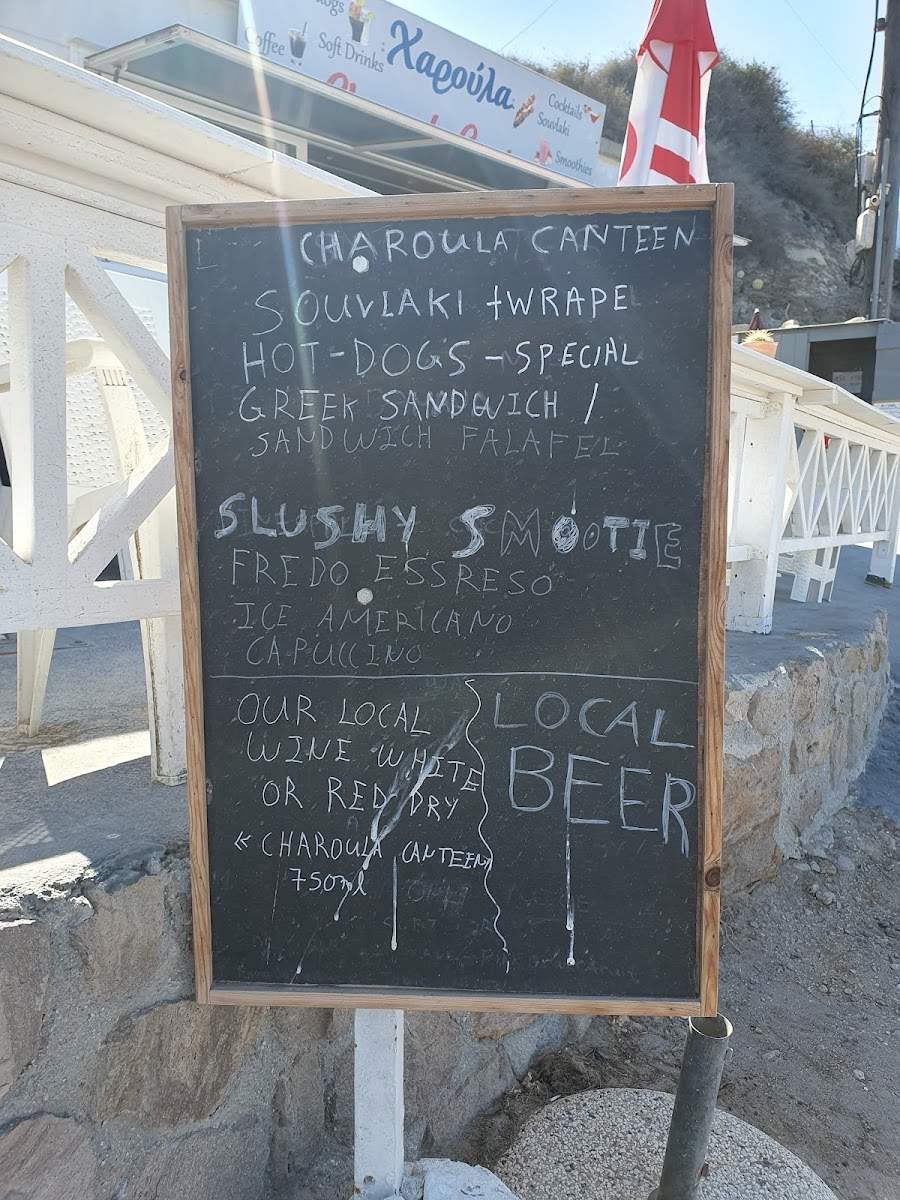 Coffee
Soft Drinks
Χαρούλα
Cocktails
Souvlaki
Smoothies
CHAROULA CANTEEN
SOUVLAKI +WRAPE
HOT-DOGS-SPECIAL
GREEK SANDWICH /
SANDWICH FALAFEL
SLUSHY SMOOTIE
FREDO ESSRESO
ICE AMERICANO
CAPUCCINO
OUR LOCAL
WINE WHITE
OR RED DRY
« CHAROULA CANTEEN
750ml
LOCAL
BEER